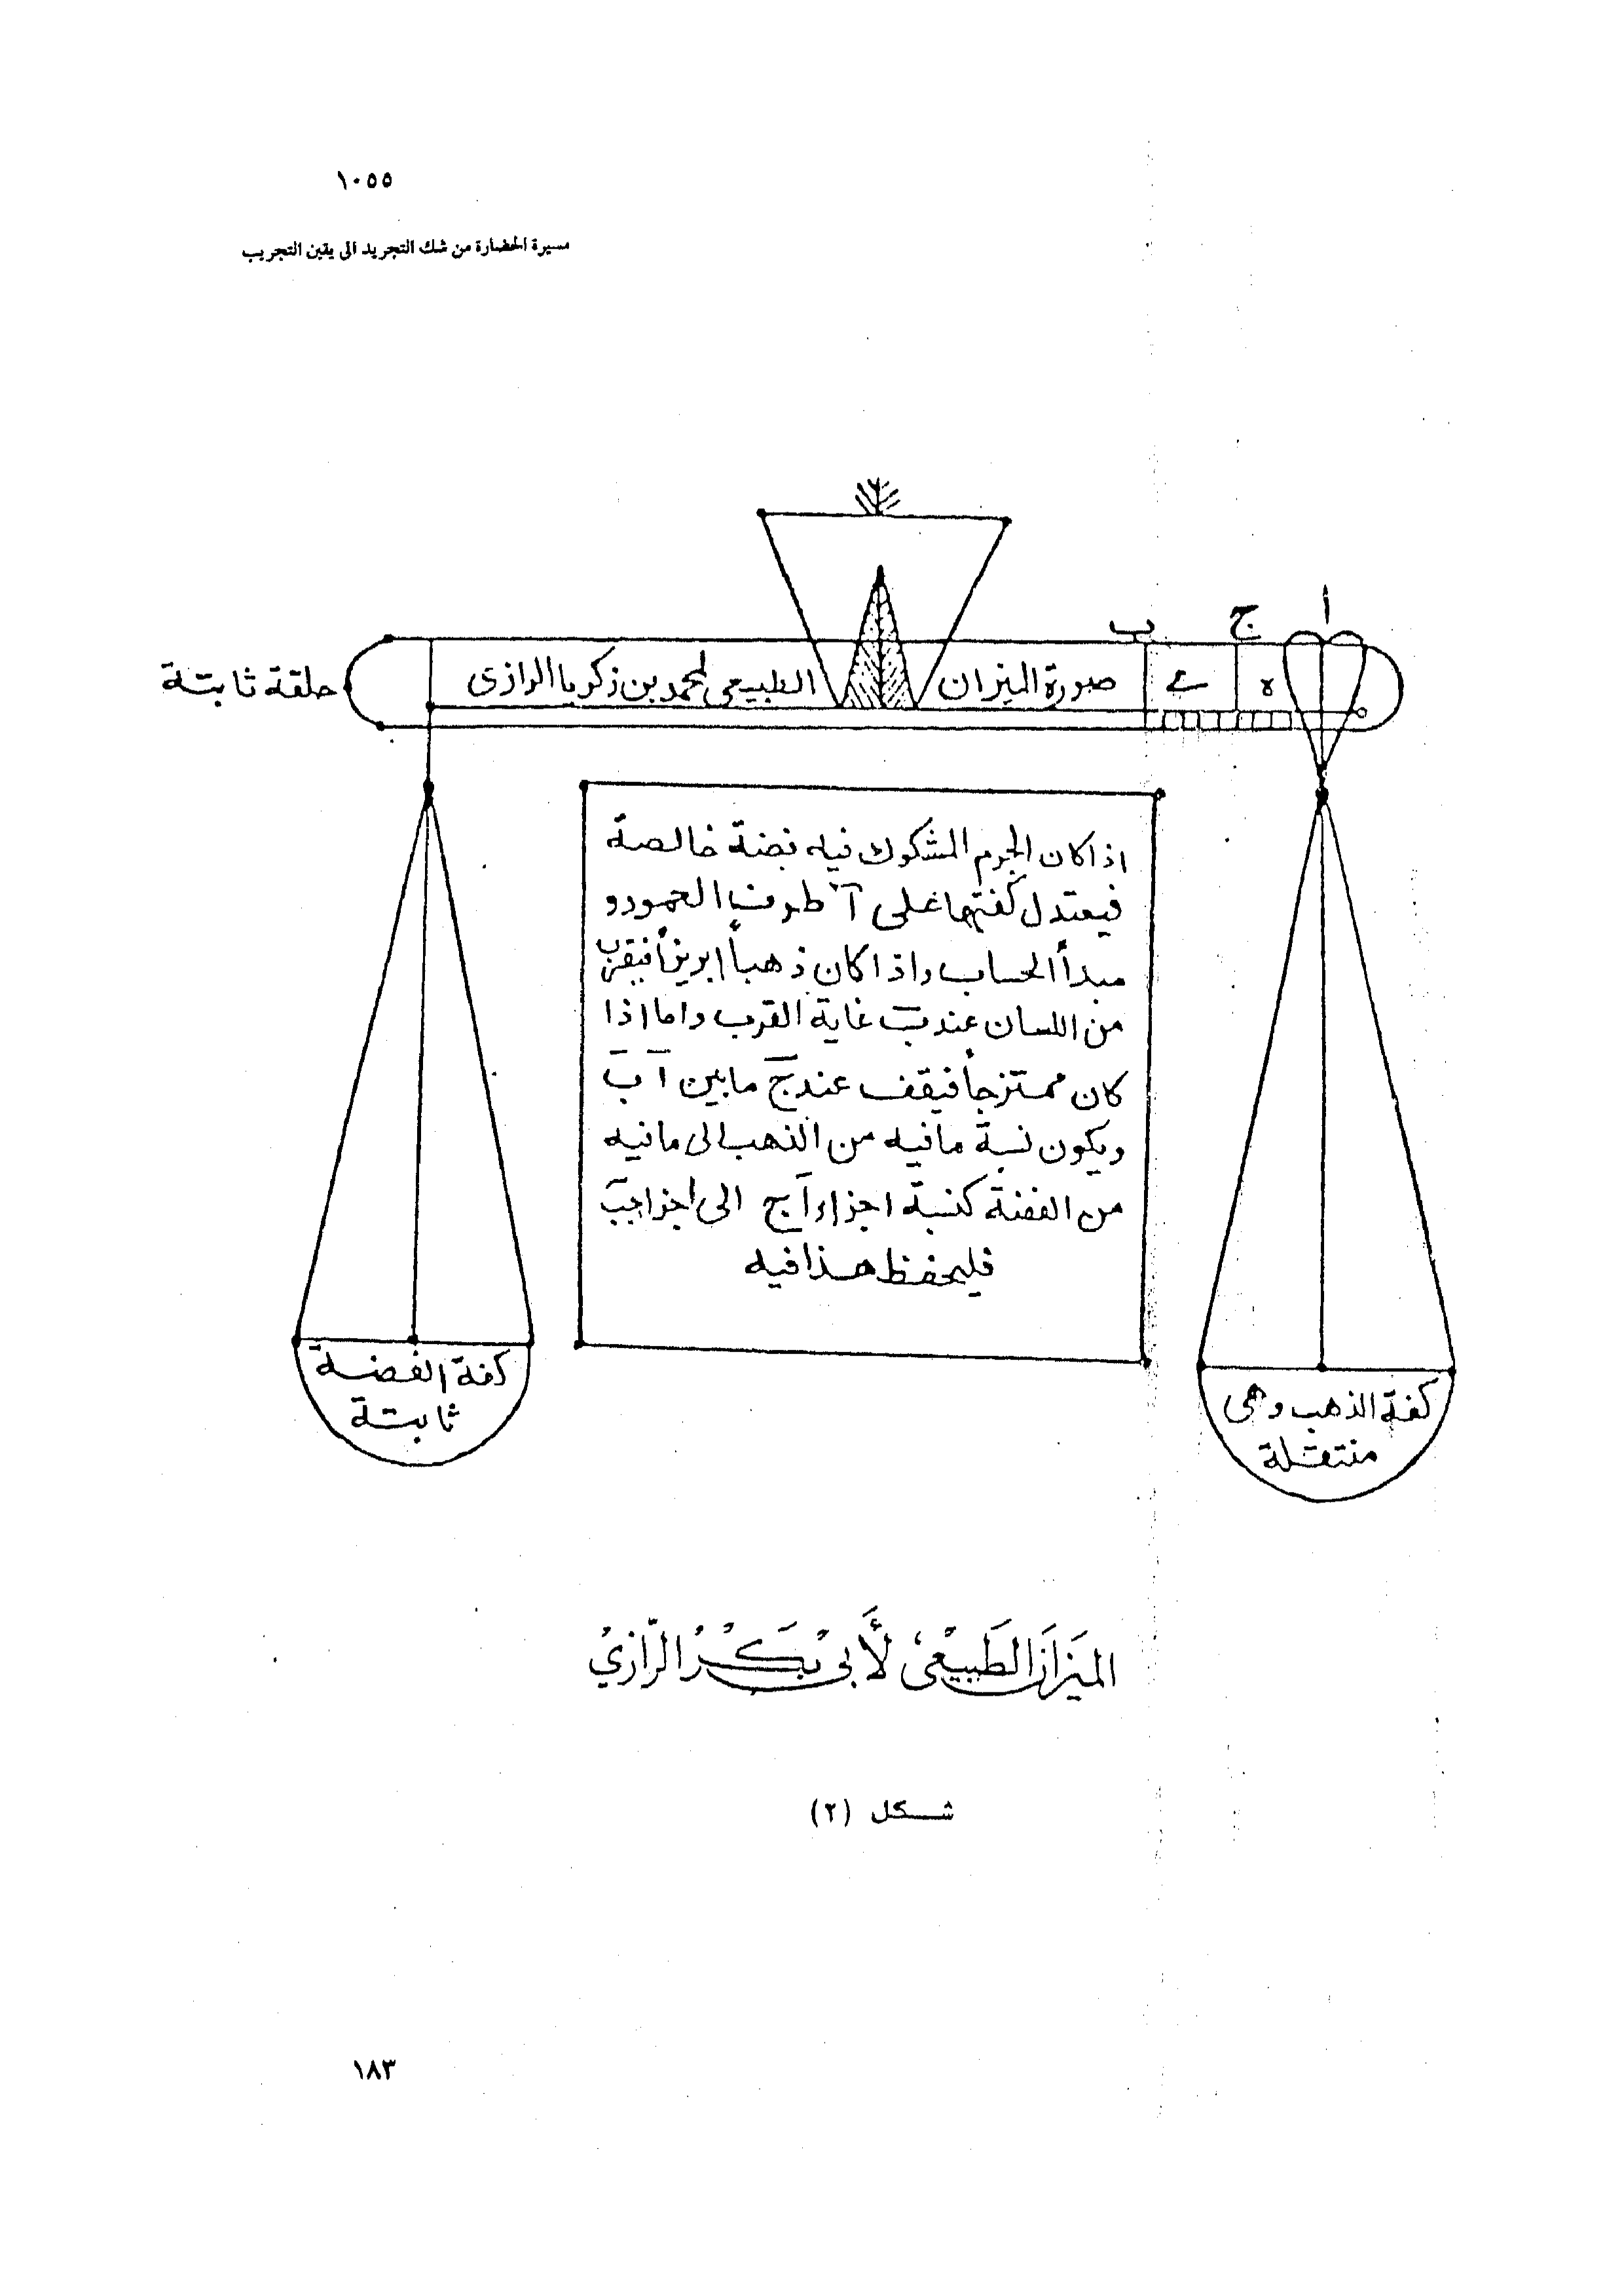 ١٠٥٥
مسيرة الحضارة من شك التجريد الى يقين التجريب
ا
ج
ب
حلقة ثابتة
صورة الميزان الطبيعى لمحمد بن زكريا الرازى
ه
اذا كان الجرم المشكوك فيه فضة خالصة
فيعتدل كفتها على آ طرف العمود و
مبدأ الحساب واذا كان ذهباً ابريزاً فيقرب
من اللسان عند ب غاية القرب واما اذا
كان ممتزجاً فيقف عند ج ما بين آ ب
ويكون نسبة ما فيه من الذهب الى ما فيه
من الفضة كنسبة اجزاء آج الى اجزا جب
فليحفظ هذا فيه
كفة الفضة
ثابتة
كفة الذهب وهى
منتقلة
الميَزان الطَبيْعى لأَبى بَكْر الرّازيْ
شكل (٢)
١٨٣